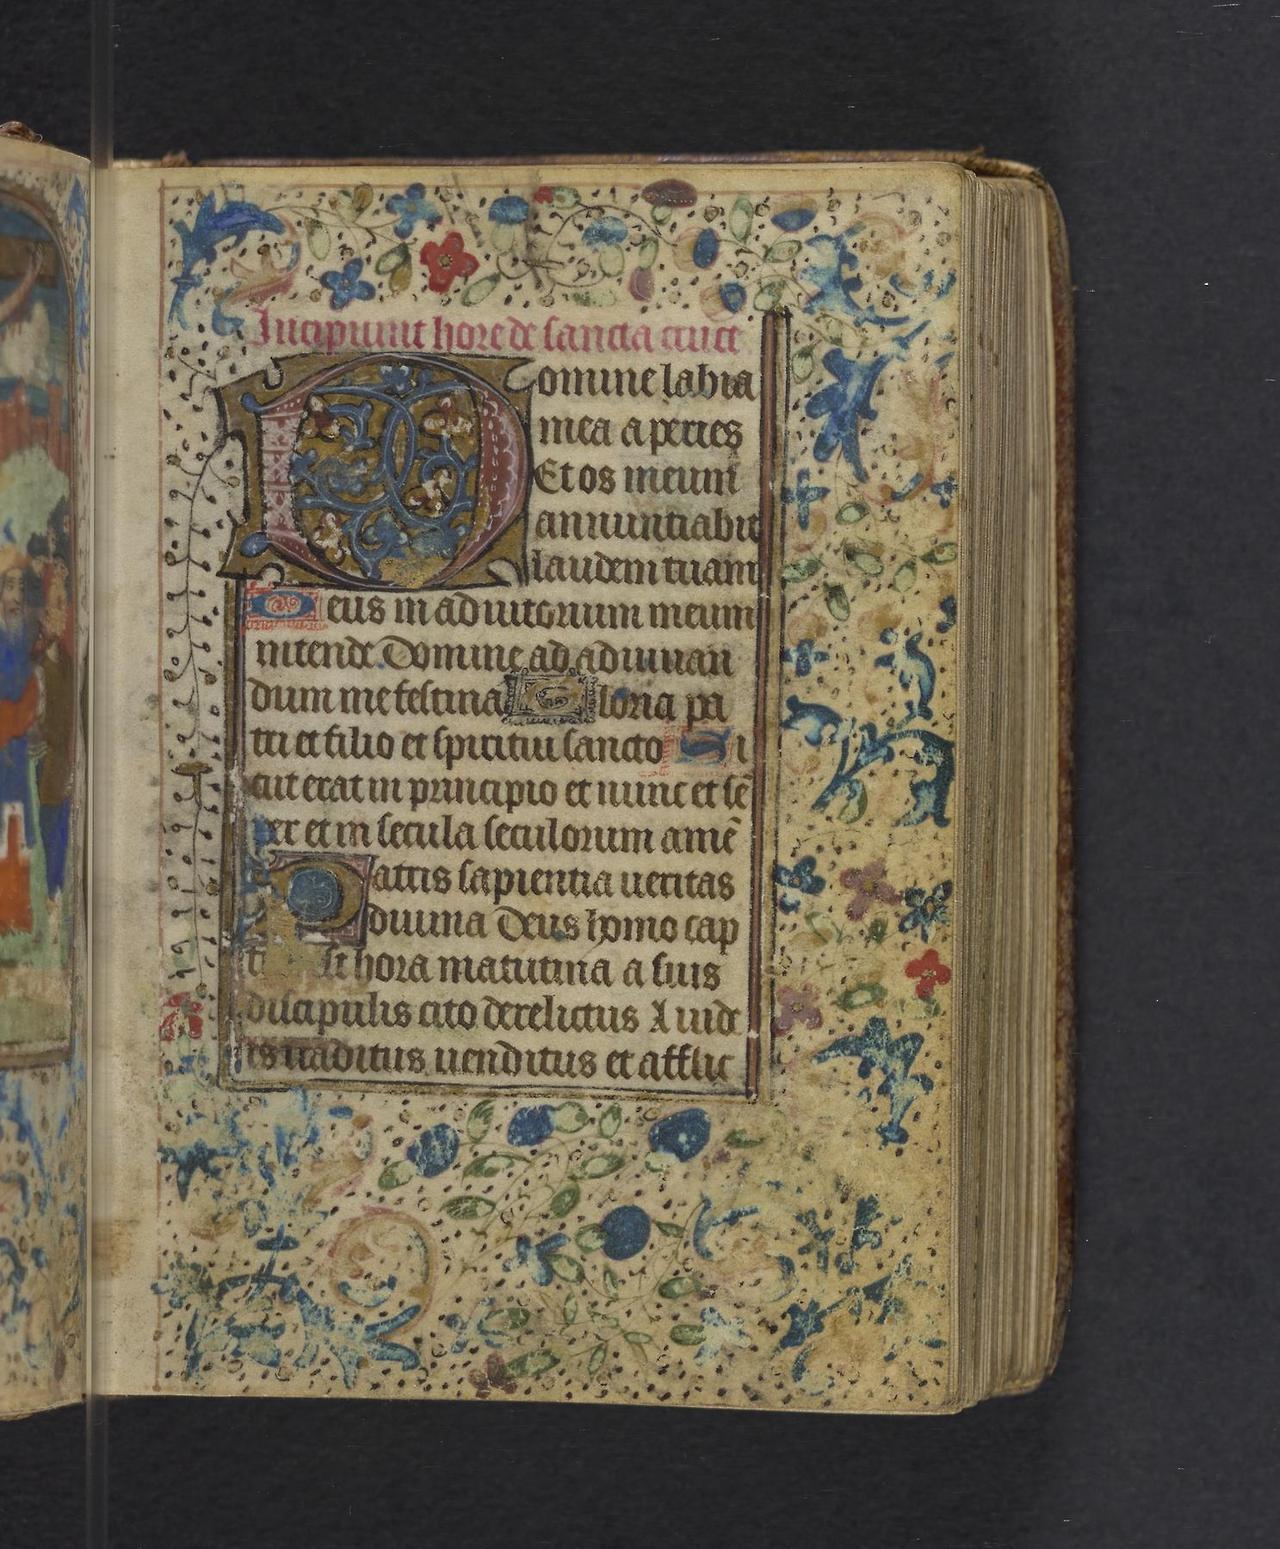 Incipiunt hore de sancta cruce
Domine labia
mea aperies
Et os meum̄
annuntiabit
laudem tuam
Deus in adiutorium meum
intende. Domine ad adiuuan
dum me festina Gloria pa
tri et filio et spiritui sancto Si
cut erat in principio et nunc et sē
per et in secula seculorum amē
Patris sapientia ueritas
diuina Deus homo cap
hora matutina a suis
discipulis cito derelictus A iude
is traditus uenditus et afflic